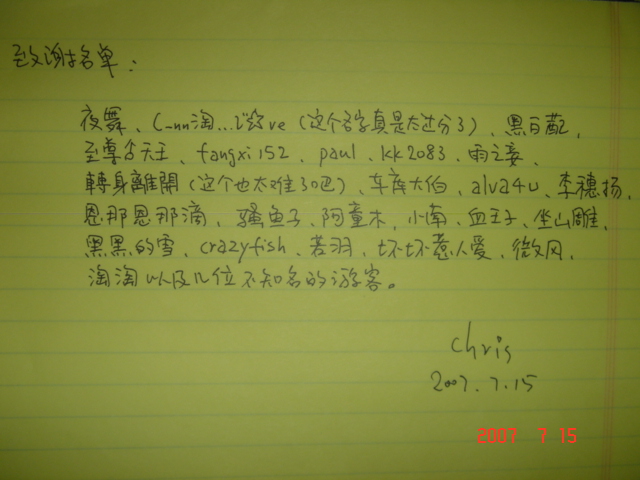 致谢名单：
夜舞、(_nn淘...谂ve（这个名字真是太过分了）、黑白配、
至尊古天王、fangxi152、paul、kk2083、雨之妾、
轉身離開（这个也太难了吧）、车库大伯、alva4u、李穗扬、
恩那恩那滴、骚鱼子、阿童木、小南、血王子、坐山雕、
黑黑的雪、crazyfish、若羽、坏坏惹人爱、微风、
淘淘以及几位不知名的游客。
Chris
2007.7.15
2007 7 15